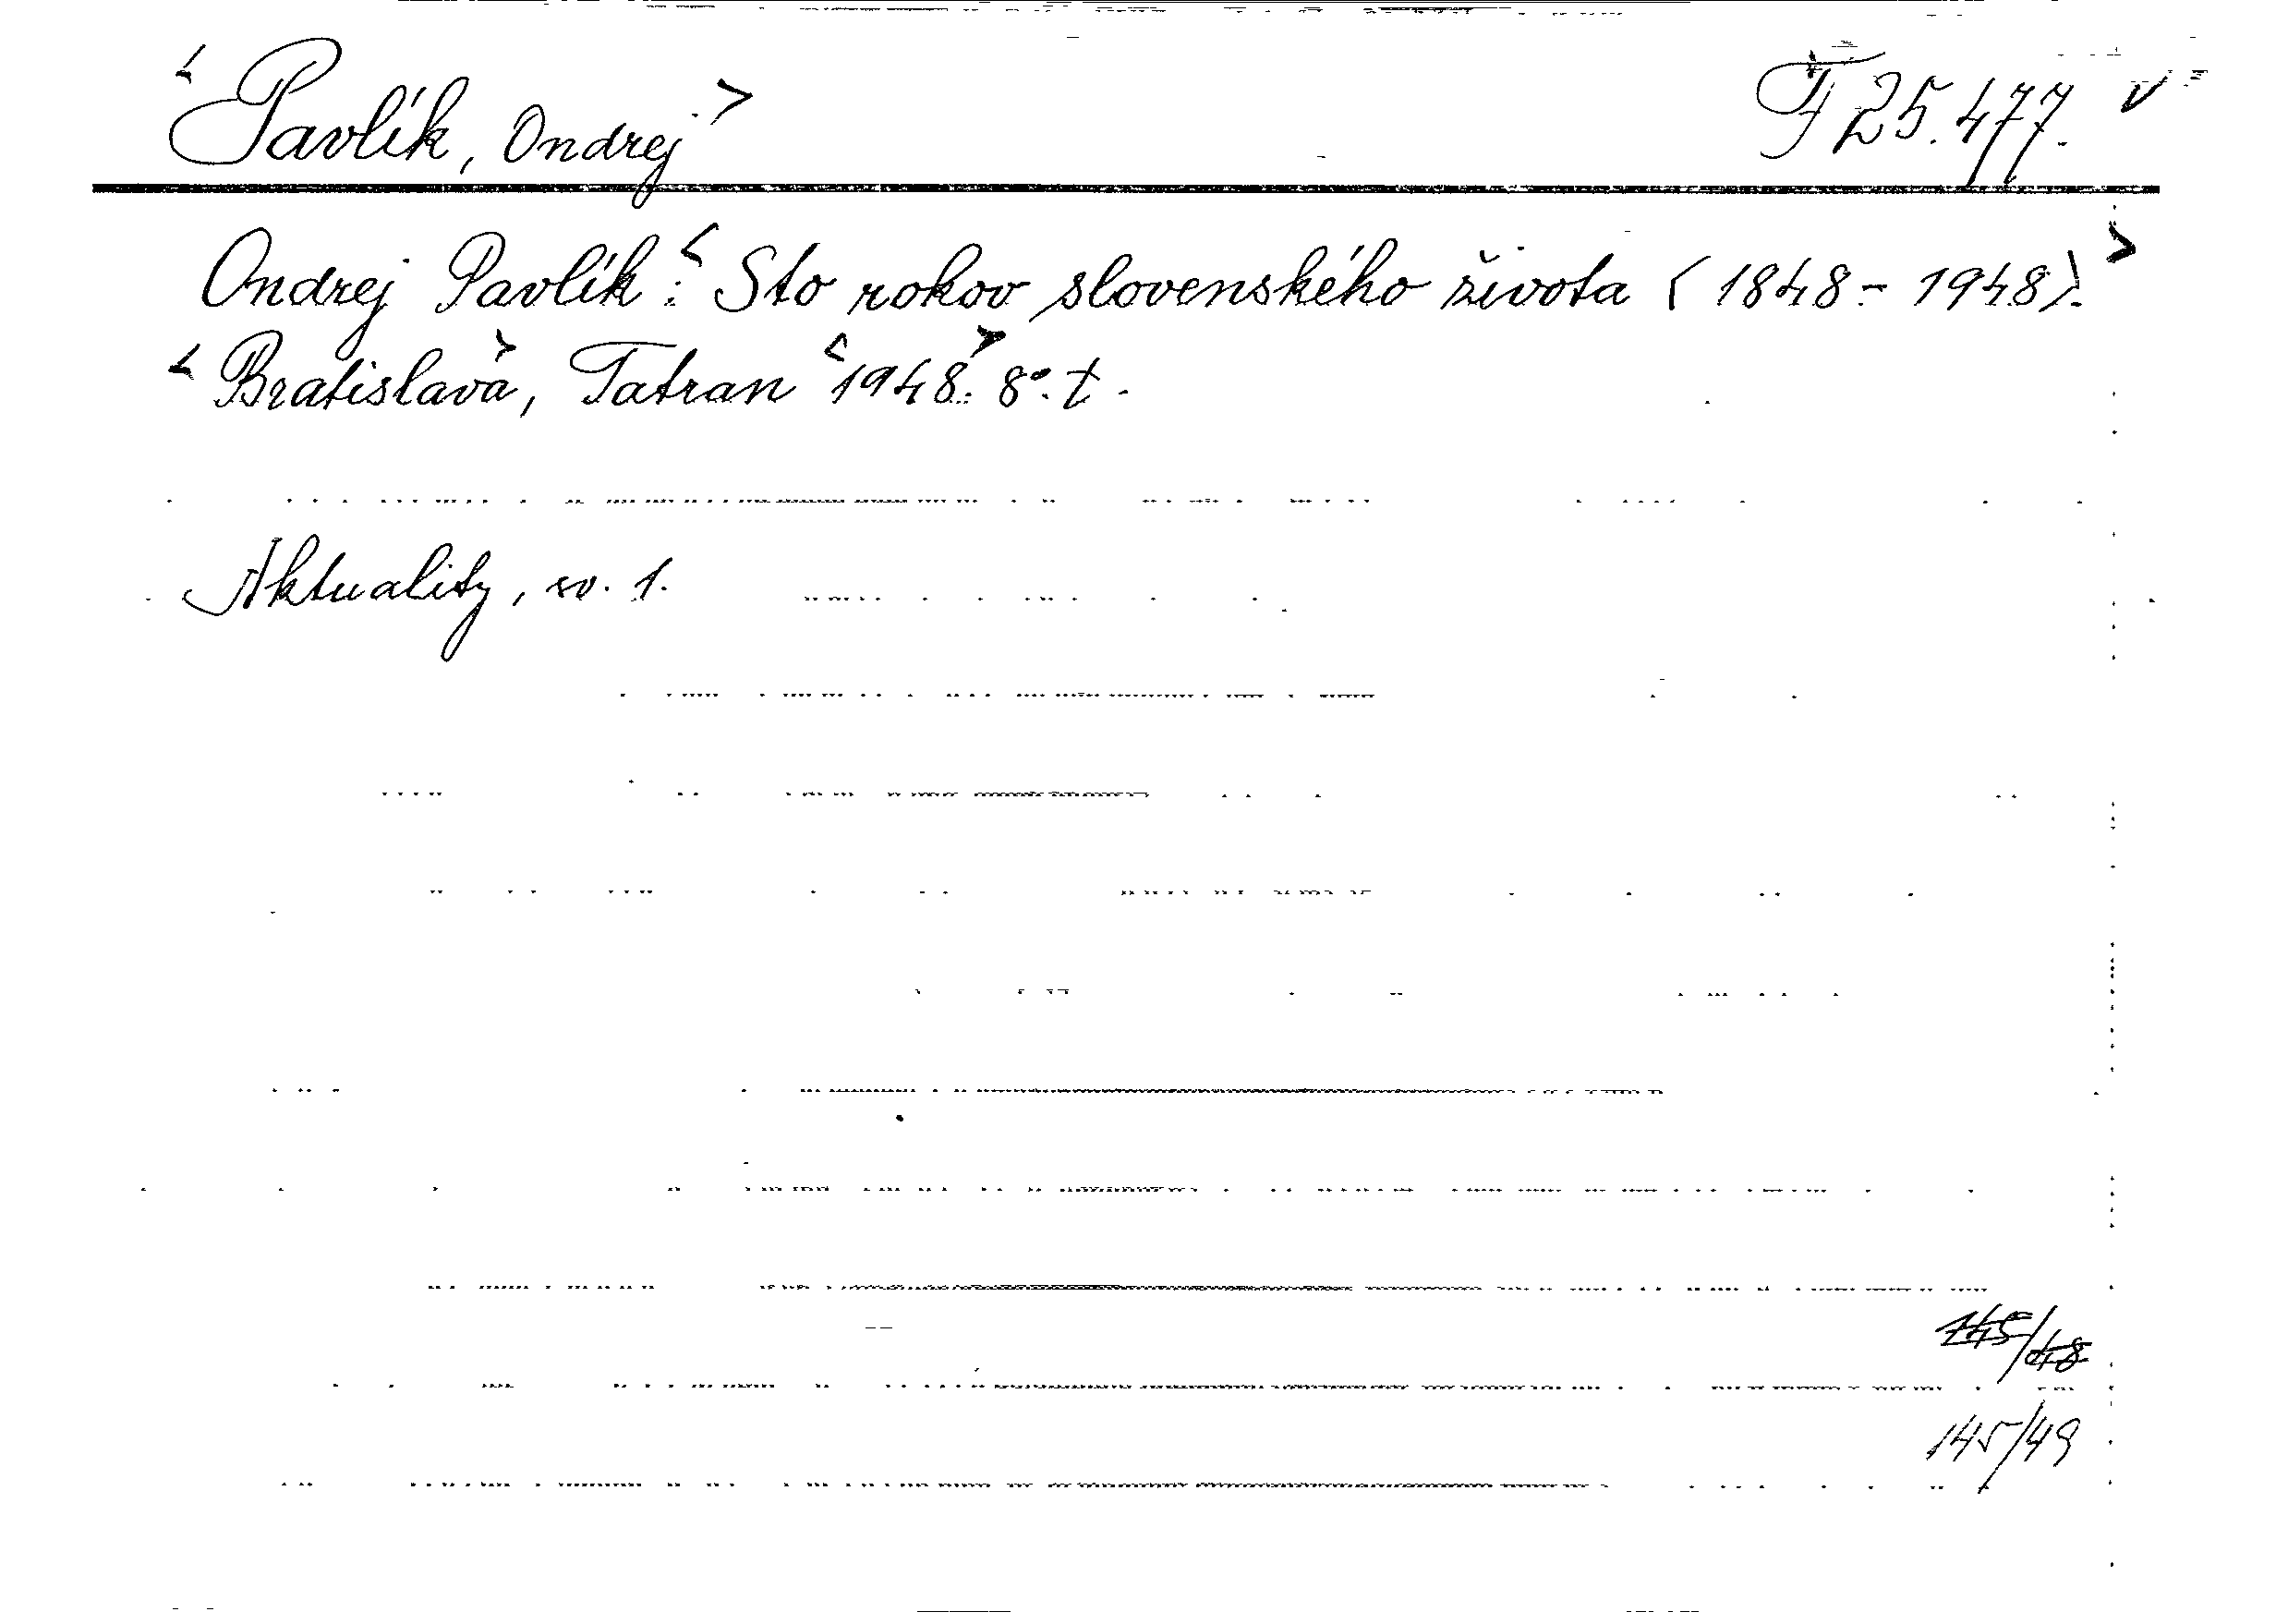 <Pavlík, Ondrej> F 25.477. v
Ondrej Pavlík: <Sto rokov slovenského života (1848-1948).>
<Bratislava>, Tatran <1948.> 8°. t.
Aktuality, sv. 1.
145/48
145/49